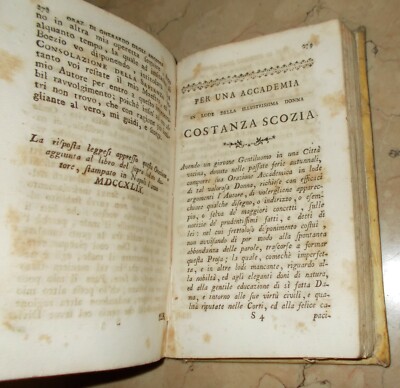 278 ORAT. DI GHERARDO DEGLI
no in altra mi
alquanto tempo, la quale
Boezio vo disponendo,
CONSOLAZIONE DELLA
tanto voi reitate il
mio Autore per entro a
bil ravvolgimento; poichè
tri non trovo, che con
gliante al vero, mi guidi, e
La risposta leggesi appresso questa
aggiunta al libro del
tore, stampato in
MDCCXLIX
279
PER UNA ACCADEMIA
IN LODE DELLA ILLUSTRISSIMA DONNA
COSTANZA SCOZIA.
Avendo un giovane Gentiluomo in una Città
vicina, dovuto nelle passate ferie autunnali,
comporre sua Orazione Accademica in lode
di tal valorosa Donna, richiese con efficaci
argomenti l'Autore, di volergliene apprec-
chiare qualche disegno, o indirizzo, o esem-
pio, o selva de' maggiori concetti, sulle
opere, de' prudentissimi fatti, e detti di
lei: nel cui frettoloso di ponimento costui
non avvisando di por modo alla spontanea
abbondanza delle parole, trascorse a formar
questa Prosa; la quale, comechè imperfet-
ta, e in altre lodi mancante, riguardo al-
la nobiltà, ed agli eleganti doni di natura,
ed alla gentile educazione di sì fatta Da-
ma, e intorno alle sue virtù civili, e qua-
lità riputate nelle Corti, ed alla felice ca-
S 4 paci-